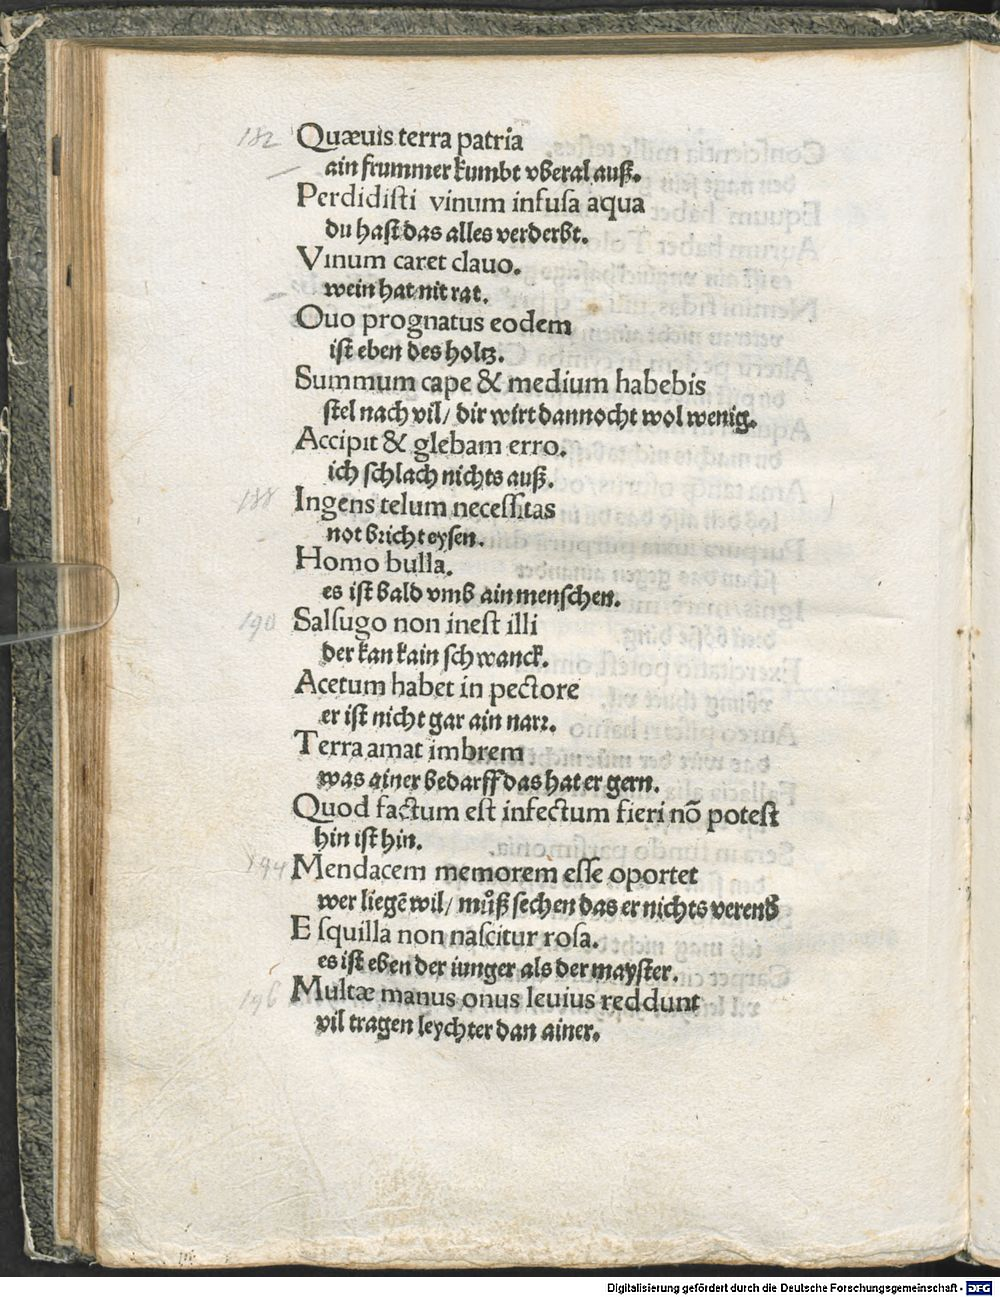 182 Quæuis terra patria
ain frummer kumbt vberal auß.
Perdidisti vinum infusa aqua
du hast das alles verderbt.
Vinum caret clauo.
wein hat nit rat.
Ouo prognatus eodem
ist eben des holtz.
Summum cape & medium habebis
stel nach vil/ dir wirt dannocht wol wenig.
Accipit & glebam erro.
ich schlach nichts auß.
188 Ingens telum necessitas
not bricht eysen.
Homo bulla.
es ist bald vmb ain menschen.
190 Salsugo non inest illi
der kan kain schwanck.
Acetum habet in pectore
er ist nicht gar ain narr.
Terra amat imbrem
was ainer bedarff das hat er gern.
Quod factum est infectum fieri nō potest
hin ist hin.
194 Mendacem memorem esse oportet
wer liegē wil/ muͦß sechen das er nichts verend
E squilla non nascitur rosa.
es ist eben der iunger als der mayster.
196 Multæ manus onus leuius reddunt
vil tragen leychter dan ainer.
Digitalisierung gefördert durch die Deutsche Forschungsgemeinschaft - DFG